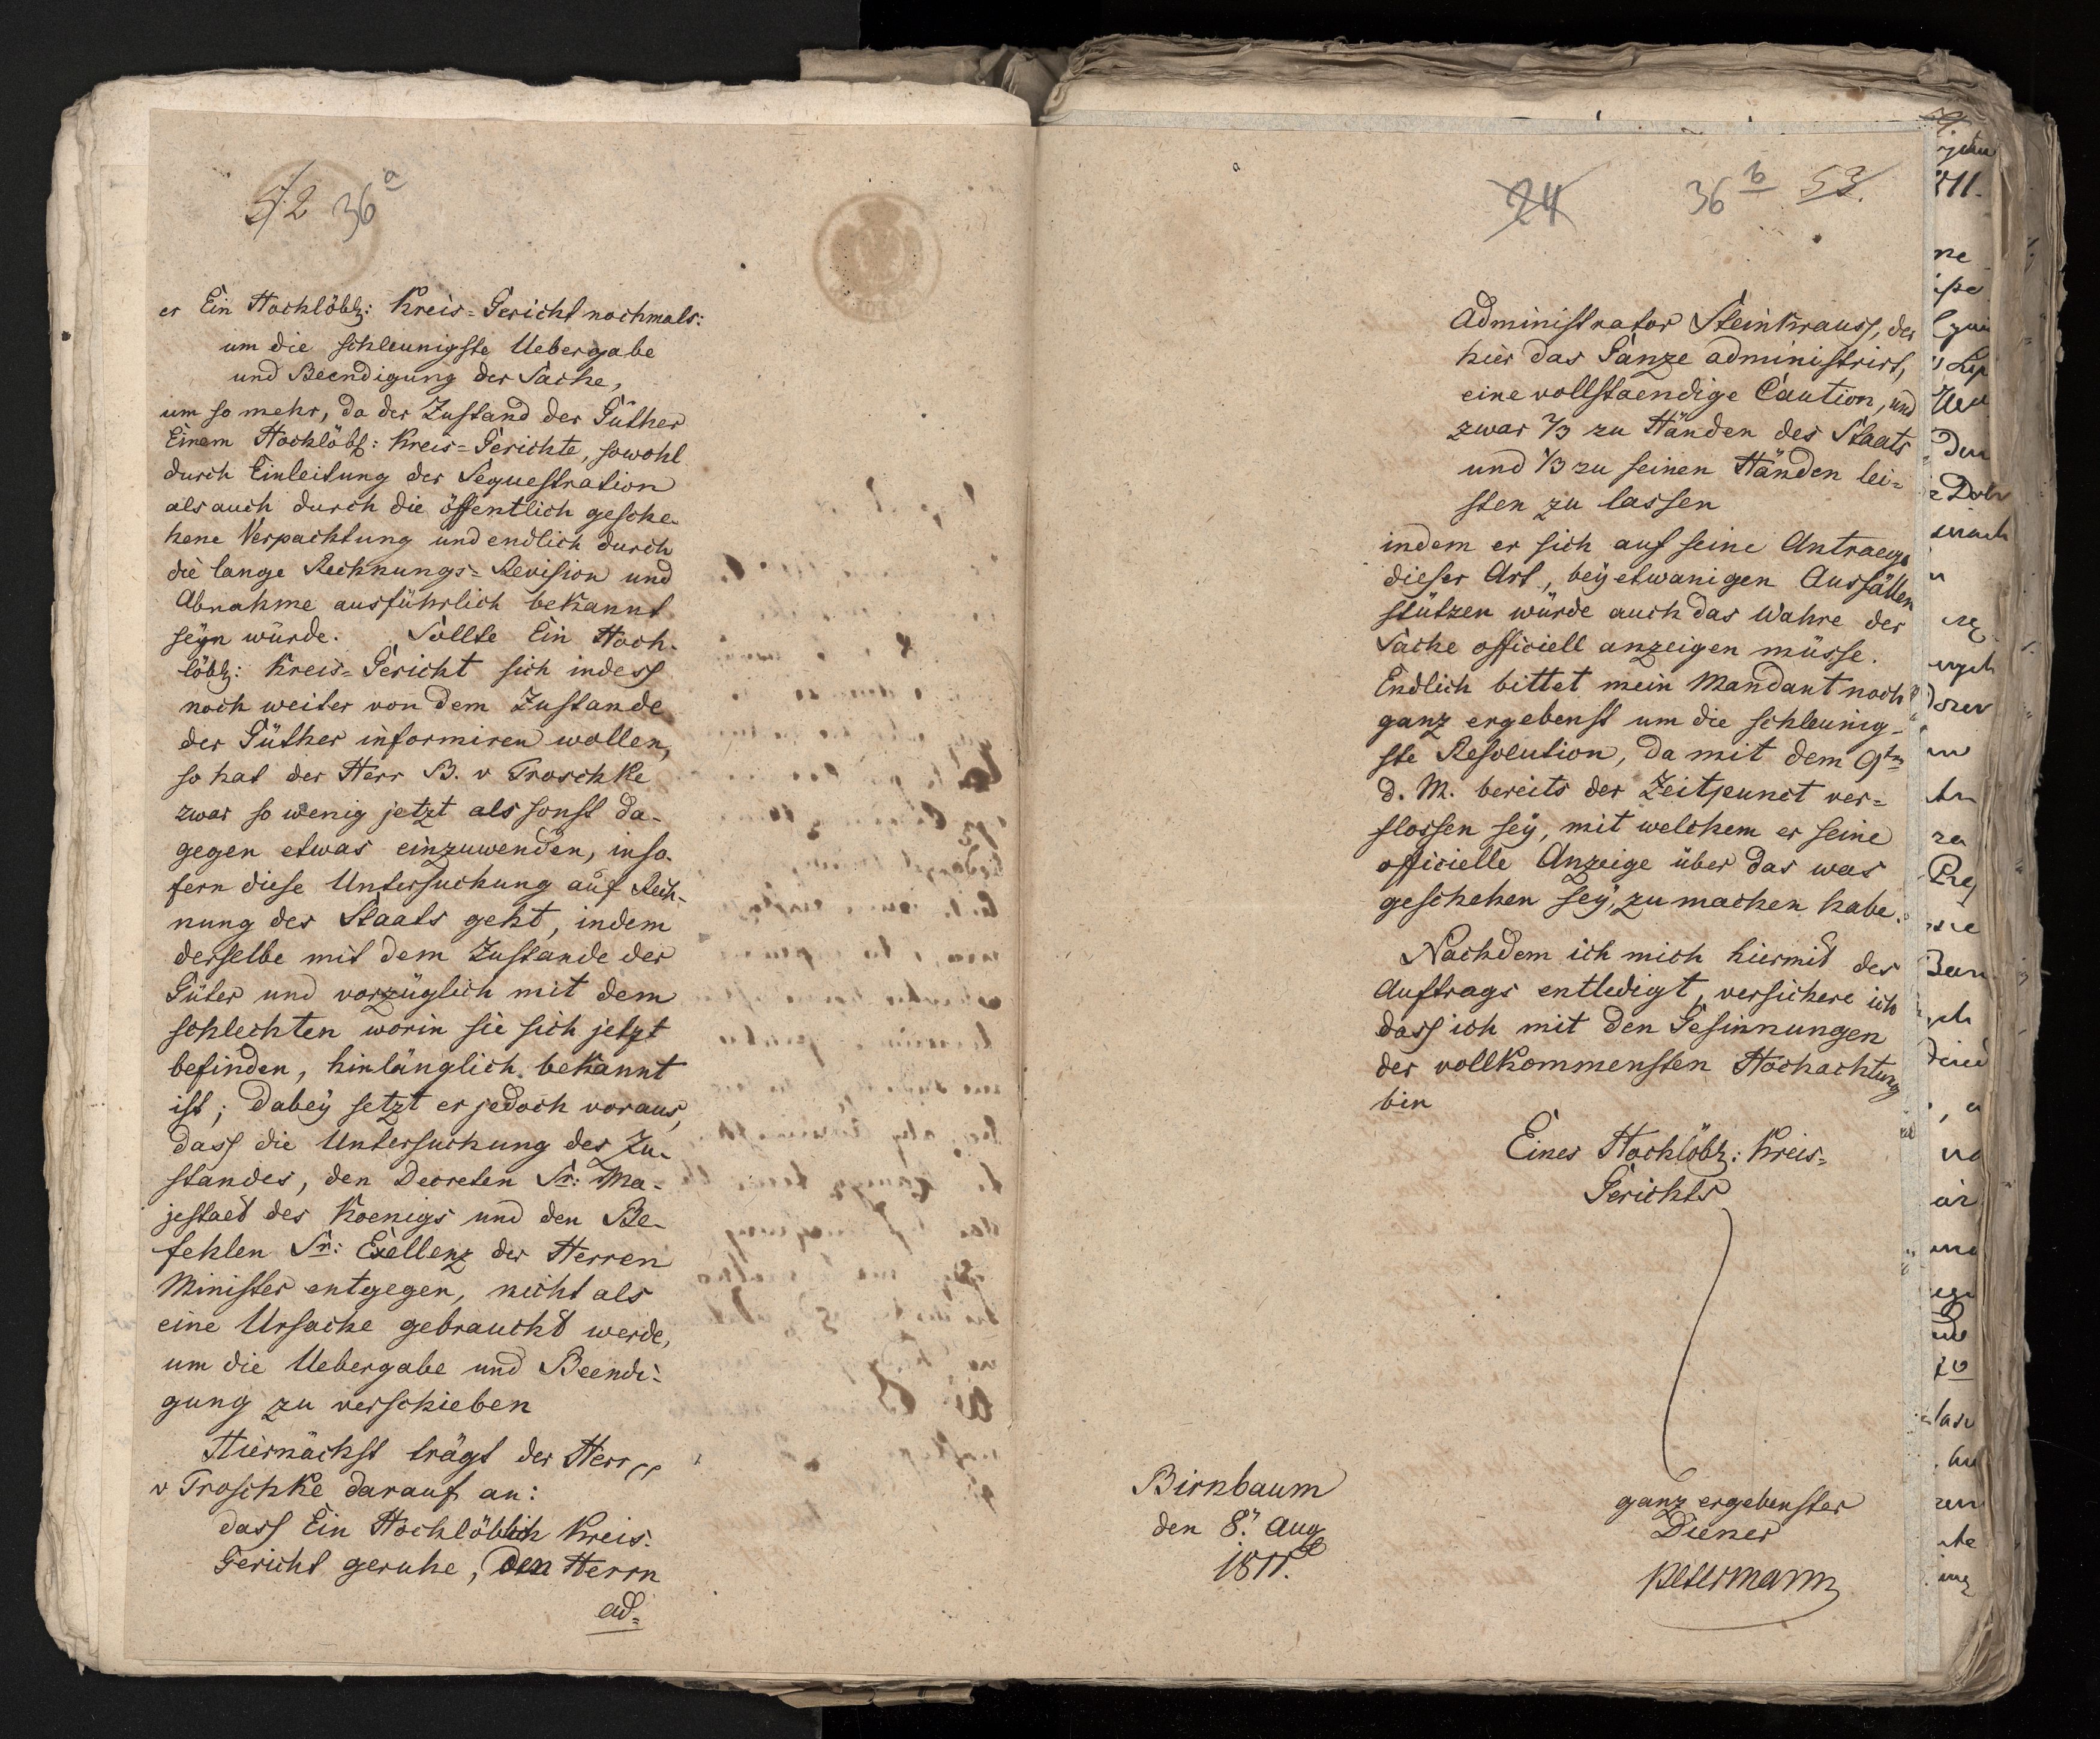 52 36a
er Ein Hochlöbl: Kreis-Gericht nochmals:
um die schleunigste Uebergabe
und Beendigung der Sache,
um so mehr, da der Zustand der Güther
Einem Hochlöbl: Kreis-Gerichte, sowohl
durch Einleitung der Sequestration
als auch durch die öffentlich gesche-
hene Verpachtung und endlich durch
die lange Rechnungs-Revision und
Abnahme ausführlich bekannt
seyn würde. Sollte Ein Hoch-
löbl: Kreis-Gericht sich indess
noch weiter von dem Zustande
der Güther informiren wollen,
so hat der Herr B. v Troschke
zwar so wenig jetzt als sonst da-
gegen etwas einzuwenden, inso-
fern diese Untersuchung auf Rech-
nung des Staats geht, indem
derselbe mit dem Zustande der
Güter und vorzüglich mit dem
schlechten worin sie sich jetzt
befinden, hinlänglich bekannt
ist; dabey setzt er jedoch voraus,
dass die Untersuchung des Zu-
standes, den Decreten Sr: Ma-
jestaet des Koenigs und den Be-
fehlen Sr: Exellenz der Herren
Minister entgegen, nicht als
eine Ursache gebraucht werde,
um die Uebergabe und Beendi-
gung zu verschieben
Hiernächst trägt der Herr
v Troschke darauf an:
dass Ein Hochlöblich Kreis-
Gericht geruhe, den Herrn
ad-
24 36b 53.
Administrator Steinkrauss, der
hier das Ganze administrirt,
eine vollstaendige Caution, und
zwar 2/3 zu Händen des Staats
und 1/3 zu seinen Händen lei-
sten zu lassen
indem er sich auf seine Antraege
dieser Art, bey etwanigen Ausfällen
stützen würde auch das Wahre der
Sache officiell anzeigen müsse.
Endlich bittet mein Mandant noch
ganz ergebenst um die schleunig-
ste Resolution, da mit dem 9tn
d. M. bereits der Zeitpunct ver-
flossen sey, mit welchem er seine
officielle Anzeige über das was
geschehen sey, zu machen habe.
Nachdem ich mich hiermit des
Auftrags entledigt, versichere ich
dass ich mit den Gesinnungen
der vollkommensten Hochachtung
bin
Eines Hochlöbl: Kreis-
Gerichts
Birnbaum
den 8. Aug
1811.
ganz ergebenster
Diener
Petermann